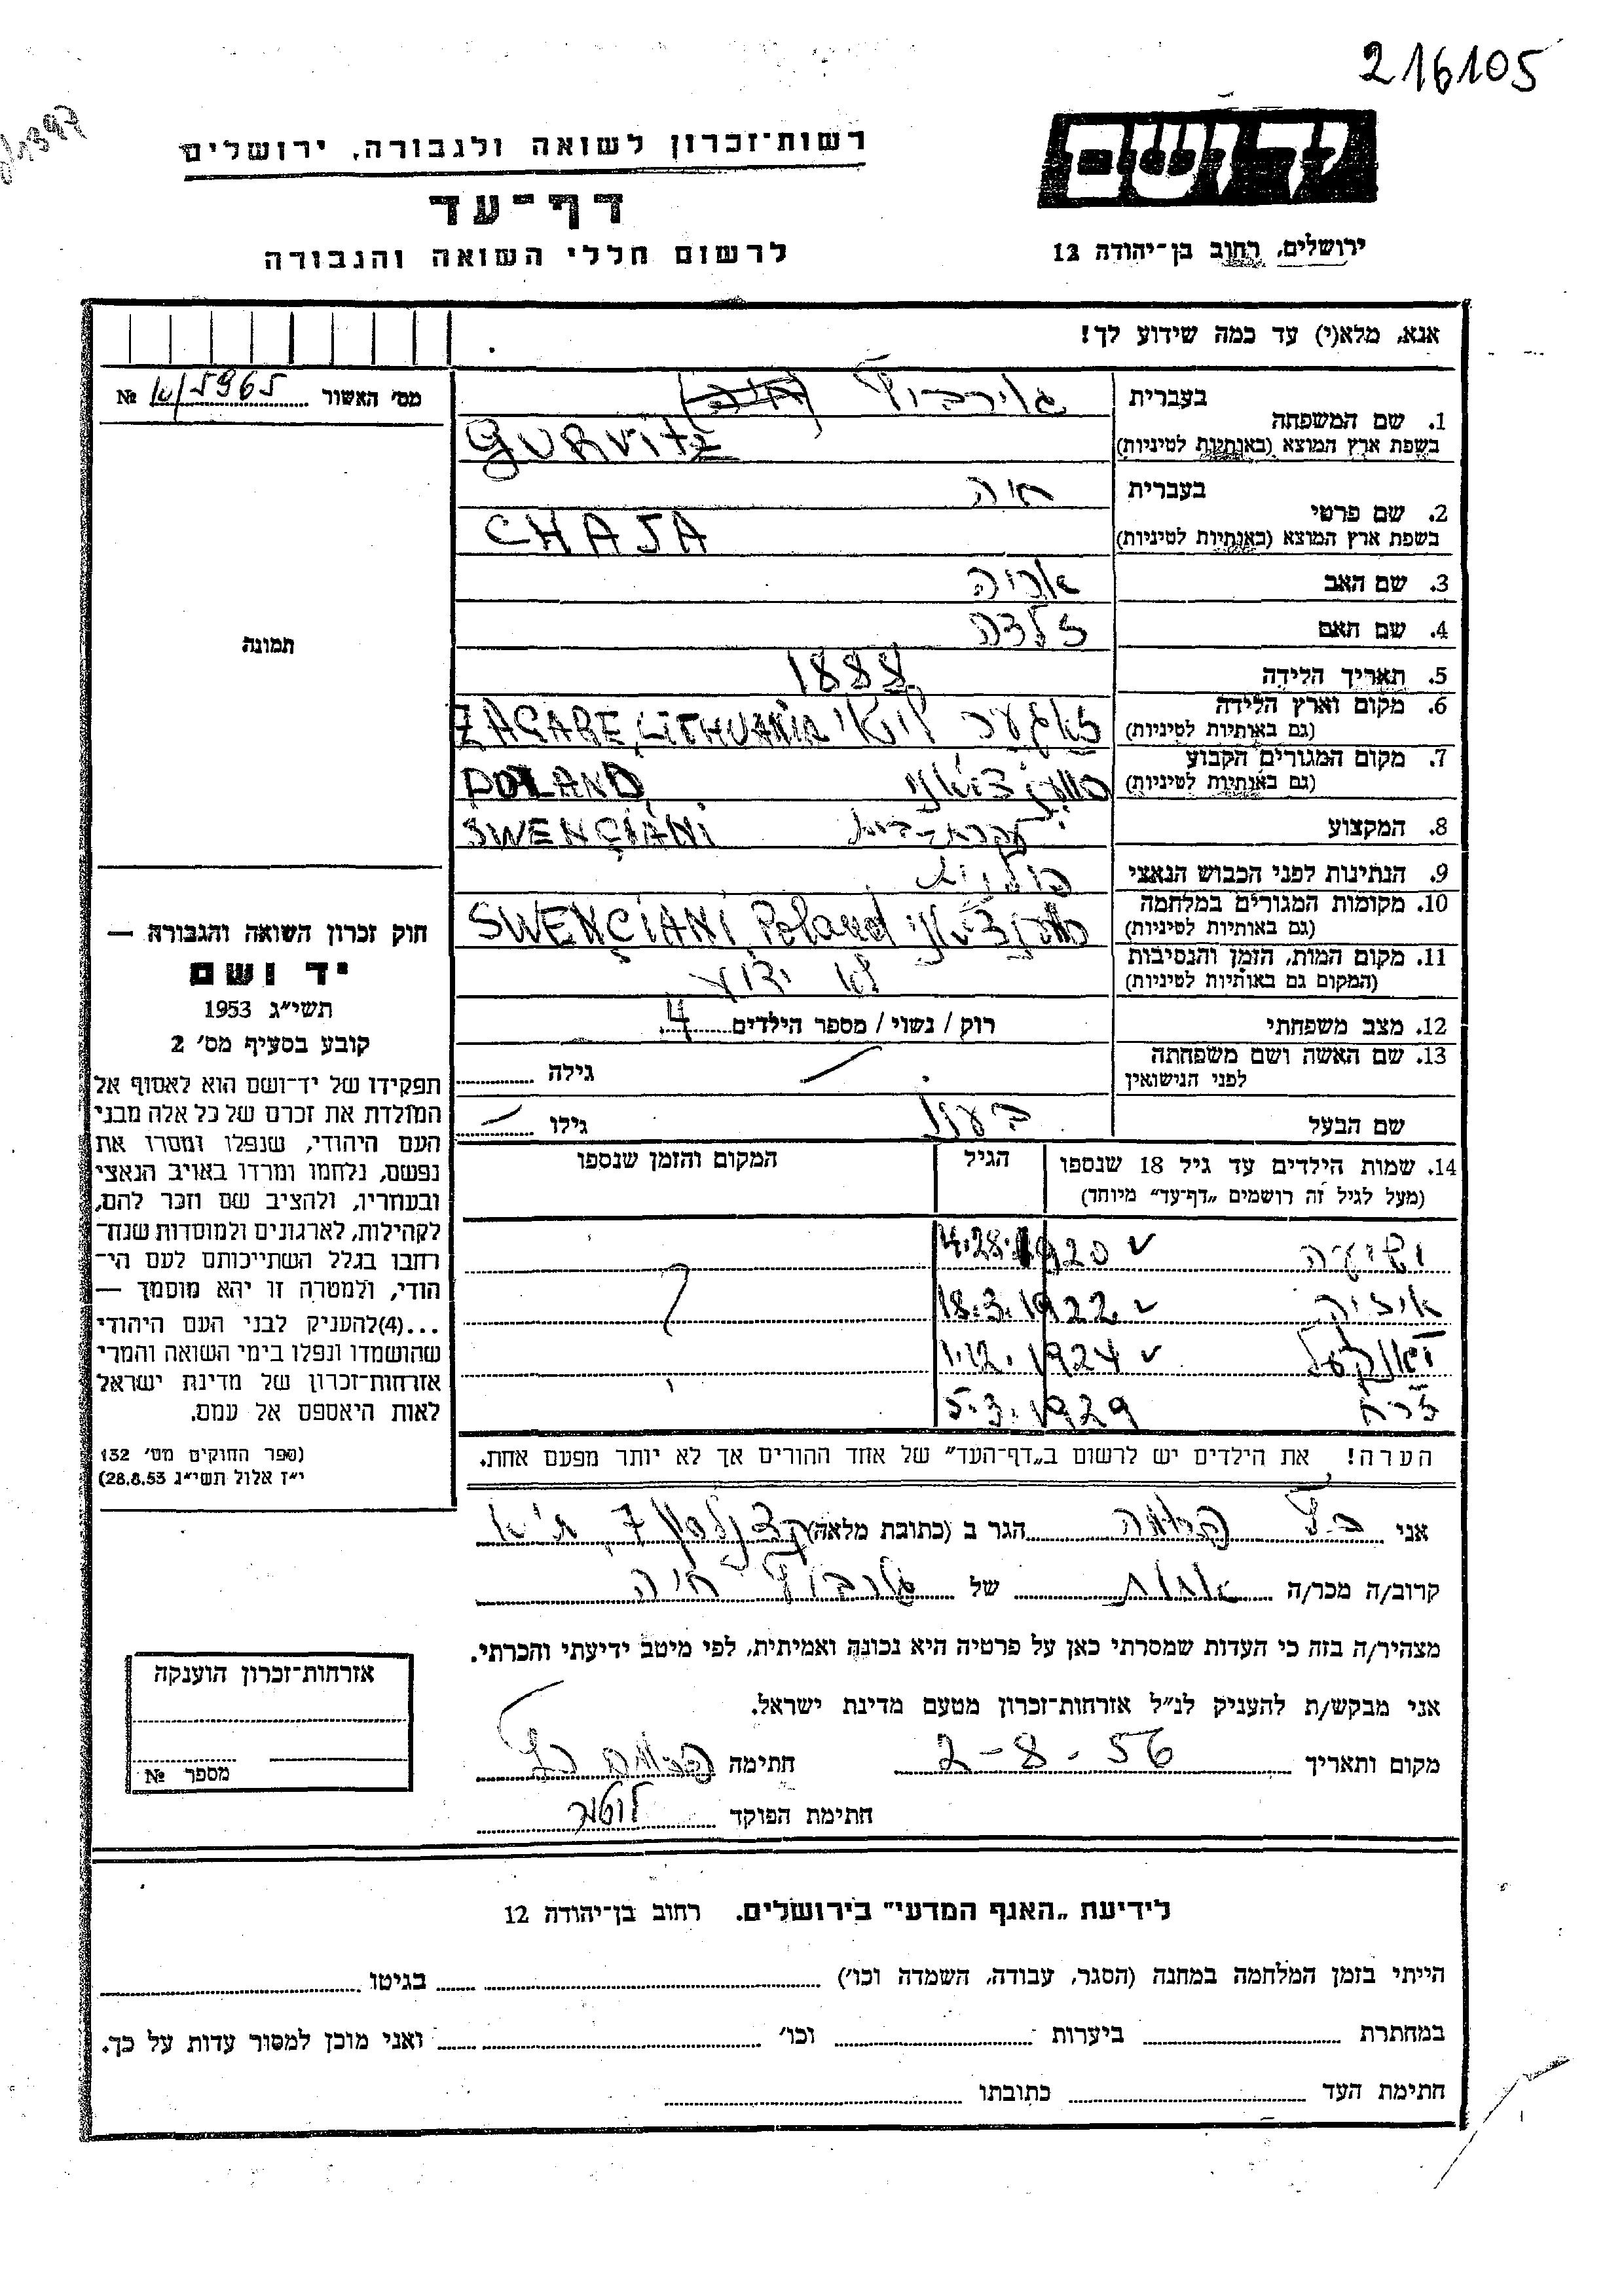 216105
רשות־זכרון לשואה ולגבורה, ירושלים
יד ושם
דף־עד
לרשום חללי השואה והגבורה
ירושלים, רחוב בן־יהודה 12
אנא, מלא(י) עד כמה שידוע לך!
מס׳ האשור 5965/א №
תמונה
1. שם המשפחה
בעברית גורביץ
בשפת ארץ המוצא (באותיות לטיניות) GURVITZ
2. שם פרטי
בעברית חיה
בשפת ארץ המוצא (באותיות לטיניות) CHAJA
3. שם האב אריה
4. שם האם זלדה
5. תאריך הלידה 1888
6. מקום וארץ הלידה
(גם באותיות לטיניות) ZAGARE, LITHUANIA
7. מקום המגורים הקבוע
(גם באותיות לטיניות) POLAND
8. המקצוע SWENÇIANI
9. הנתינות לפני הכבוש הנאצי פולנית
10. מקומות המגורים במלחמה
(גם באותיות לטיניות) SWENÇIANI Poland
11. מקום המות, הזמן והנסיבות
(המקום גם באותיות לטיניות) לא ידוע
12. מצב משפחתי רוק / נשוי / מספר הילדים 4
13. שם האשה ושם משפחתה
לפני הנישואין גילה
שם הבעל גילו
14. שמות הילדים עד גיל 18 שנספו הגיל המקום והזמן שנספו
(מעל לגיל זה רושמים „דף־עד״ מיוחד)
ישעיה 4.28.1920
18.3.1922
יאנקעל 1.12.1924
5.3.1929
הערה! את הילדים יש לרשום ב„דף־העד״ של אחד ההורים אך לא יותר מפעם אחת.
חוק זכרון השואה והגבורה —
יד ושם
תשי״ג 1953
קובע בסעיף מס׳ 2
תפקידו של יד־ושם הוא לאסוף אל
המולדת את זכרם של כל אלה מבני
העם היהודי, שנפלו ומסרו את
נפשם, נלחמו ומרדו באויב הנאצי
ובעוזריו, ולהציב שם וזכר להם,
לקהילות, לארגונים ולמוסדות שנח־
רבו בגלל השתייכותם לעם הי־
הודי, ולמטרה זו יהא מוסמך —
...(4)להעניק לבני העם היהודי
שהושמדו ונפלו בימי השואה והמרי
אזרחות־זכרון של מדינת ישראל
לאות היאספם אל עמם.
(ספר החוקים מס׳ 132
י״ז אלול תשי״ג 28.8.53)
אני כץ הגר ב (כתובת מלאה) קצנלסון 7
קרוב/ה מכר/ה אחות של גורביץ חיה
מצהיר/ה בזה כי העדות שמסרתי כאן על פרטיה היא נכונה ואמיתית, לפי מיטב ידיעתי והכרתי.
אני מבקש/ת להעניק לנ״ל אזרחות־זכרון מטעם מדינת ישראל.
מקום ותאריך 2-8-56 חתימה
חתימת הפוקד
אזרחות־זכרון הוענקה
מספר №
לידיעת „האגף המדעי״ בירושלים. רחוב בן־יהודה 12
הייתי בזמן המלחמה במחנה (הסגר, עבודה, השמדה וכו׳) בגיטו
במחתרת ביערות וכו׳ ואני מוכן למסור עדות על כך.
חתימת העד כתובתו